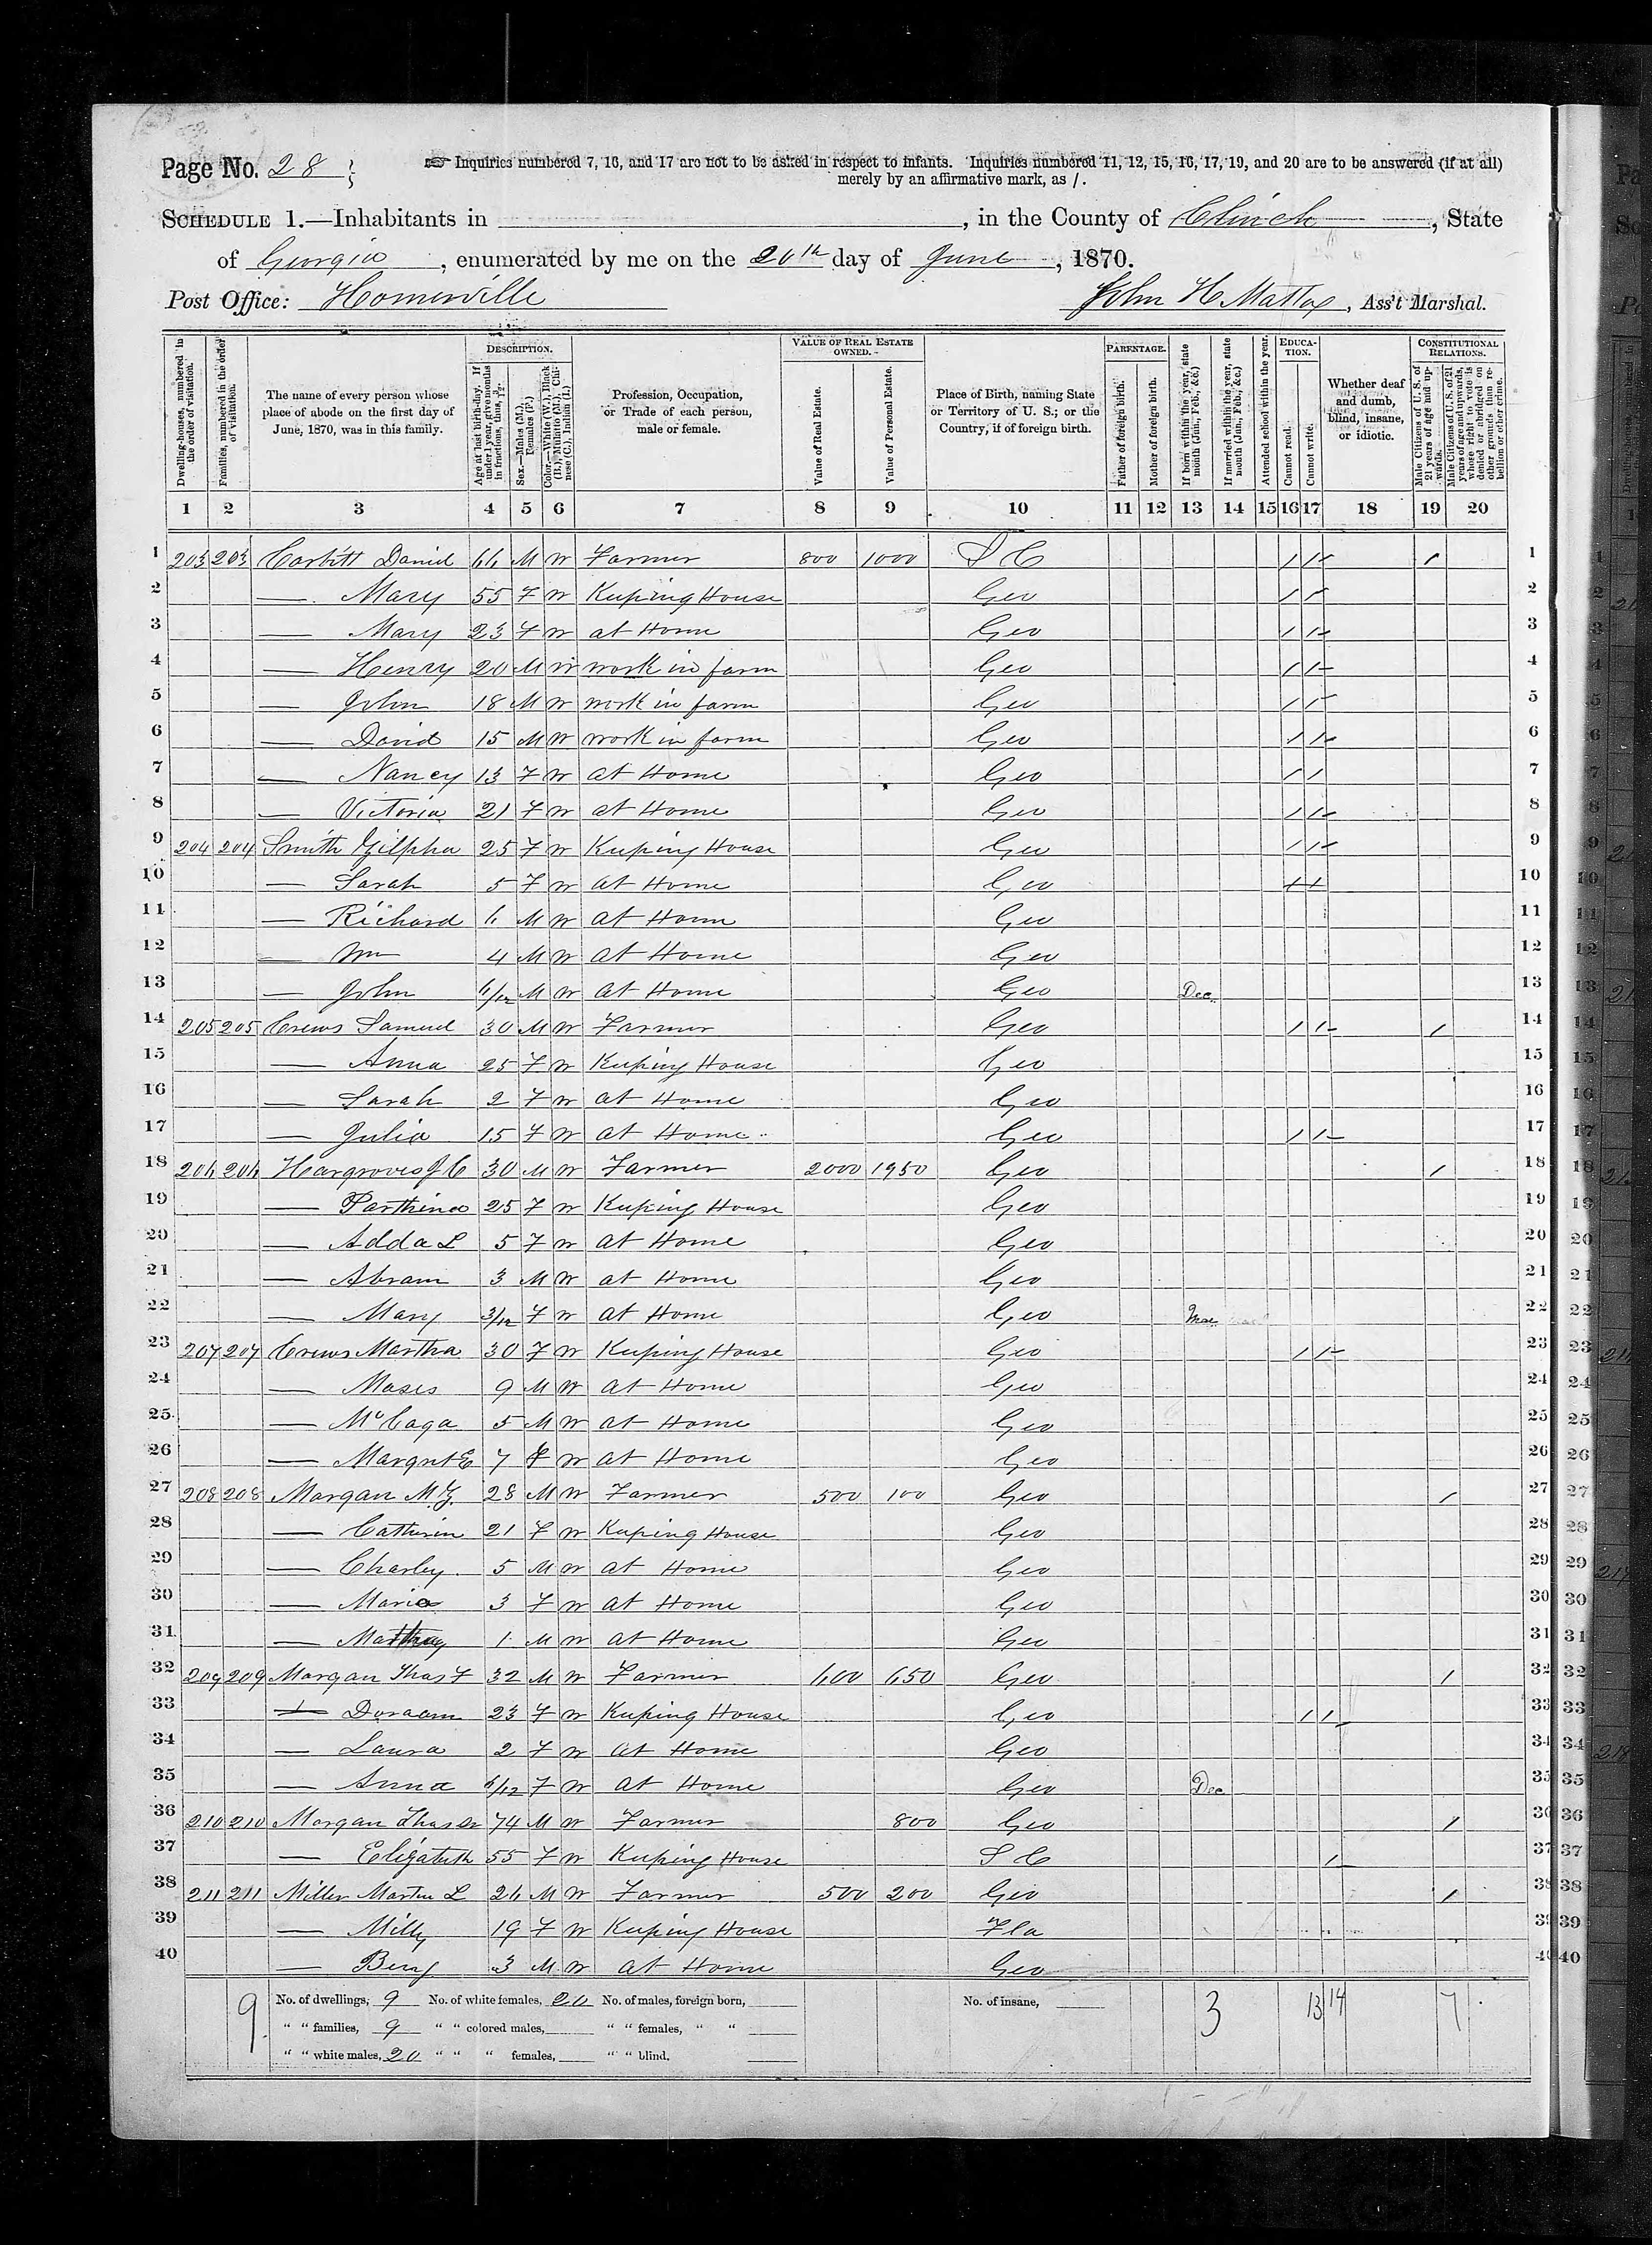 Page No. 28
Inquiries numbered 7, 16, and 17 are not to be asked in respect to infants. Inquiries numbered 11, 12, 15, 16, 17, 19, and 20 are to be answered (if at all)
merely by an affirmative mark, as /.
SCHEDULE 1.—Inhabitants in , in the County of Clinch, State
of Georgia, enumerated by me on the 20th day of June, 1870.
Post Office: Homerville John H Mattox, Ass't Marshal.
Dwelling-houses, numbered in the order of visitation.
Families, numbered in the order of visitation.
The name of every person whose place of abode on the first day of June, 1870, was in this family.
DESCRIPTION.
Age at last birth-day. If under 1 year, give months in fractions, thus, 3/12.
Sex.—Males (M.), Females (F.)
Color.—White (W.), Black (B.), Mulatto (M.), Chinese (C.), Indian (I.)
Profession, Occupation, or Trade of each person, male or female.
VALUE OF REAL ESTATE OWNED.
Value of Real Estate.
Value of Personal Estate.
Place of Birth, naming State or Territory of U. S.; or the Country, if of foreign birth.
PARENTAGE.
Father of foreign birth.
Mother of foreign birth.
If born within the year, state month (Jan., Feb., &c.)
If married within the year, state month (Jan., Feb., &c.)
Attended school within the year.
EDUCATION.
Cannot read.
Cannot write.
Whether deaf and dumb, blind, insane, or idiotic.
CONSTITUTIONAL RELATIONS.
Male Citizens of U. S. of 21 years of age and upwards.
Male Citizens of U. S. of 21 years of age and upwards, whose right to vote is denied or abridged on other grounds than rebellion or other crime.
1 2 3 4 5 6 7 8 9 10 11 12 13 14 15 16 17 18 19 20
1 203 203 Corbitt Daniel 66 M W Farmer 800 1000 S C / / / 1
2 — Mary 55 F W Keeping House Geo / / 2
3 — Mary 23 F W at Home Geo / / 3
4 — Henry 20 M W work in farm Geo / / 4
5 — John 18 M W work in farm Geo / / 5
6 — David 15 M W work in farm Geo / / 6
7 — Nancy 13 F W at Home Geo / / 7
8 — Victoria 21 F W at Home Geo / / 8
9 204 204 Smith Zilpha 25 F W Keeping House Geo / / 9
10 — Sarah 5 F W at Home Geo / / 10
11 — Richard 6 M W at Home Geo 11
12 — Wm 4 M W at Home Geo 12
13 — John 6/12 M W at Home Geo Dec 13
14 205 205 Crews Samuel 30 M W Farmer Geo / / / 14
15 — Anna 25 F W Keeping House Geo 15
16 — Sarah 2 F W at Home Geo 16
17 — Julia 15 F W at Home Geo / / 17
18 206 206 Hargroves J C 30 M W Farmer 2000 1950 Geo / 18
19 — Parthina 25 F W Keeping House Geo 19
20 — Adda L 5 F W at Home Geo 20
21 — Abram 3 M W at Home Geo 21
22 — Mary 3/12 F W at Home Geo Mar 22
23 207 207 Crews Martha 30 F W Keeping House Geo / / 23
24 — Moses 9 M W at Home Geo 24
25 — McCaga 5 M W at Home Geo 25
26 — Margret E 7 F W at Home Geo 26
27 208 208 Morgan M Z 28 M W Farmer 500 100 Geo / 27
28 — Catherin 21 F W Keeping House Geo 28
29 — Charley 5 M W at Home Geo 29
30 — Maria 3 F W at Home Geo 30
31 — 1 M W at Home Geo 31
32 209 209 Morgan Thas F 32 M W Farmer 600 650 Geo / 32
33 — 23 F W Keeping House Geo / / 33
34 — Laura 2 F W at Home Geo 34
35 — Anna 6/12 F W at Home Geo Dec 35
36 210 210 Morgan Thas Sr 74 M W Farmer 800 Geo / 36
37 — Elizabeth 55 F W Keeping House S C / 37
38 211 211 Miller Martin L 26 M W Farmer 500 200 Geo / 38
39 — Milly 19 F W Keeping House Fla 39
40 — Benj 3 M W at Home Geo 40
9 No. of dwellings, 9 No. of white females, 20 No. of males, foreign born, No. of insane, 3 13 14 7
" " families, 9 " " colored males, " " females, " "
" " white males, 20 " " " females, " " blind.